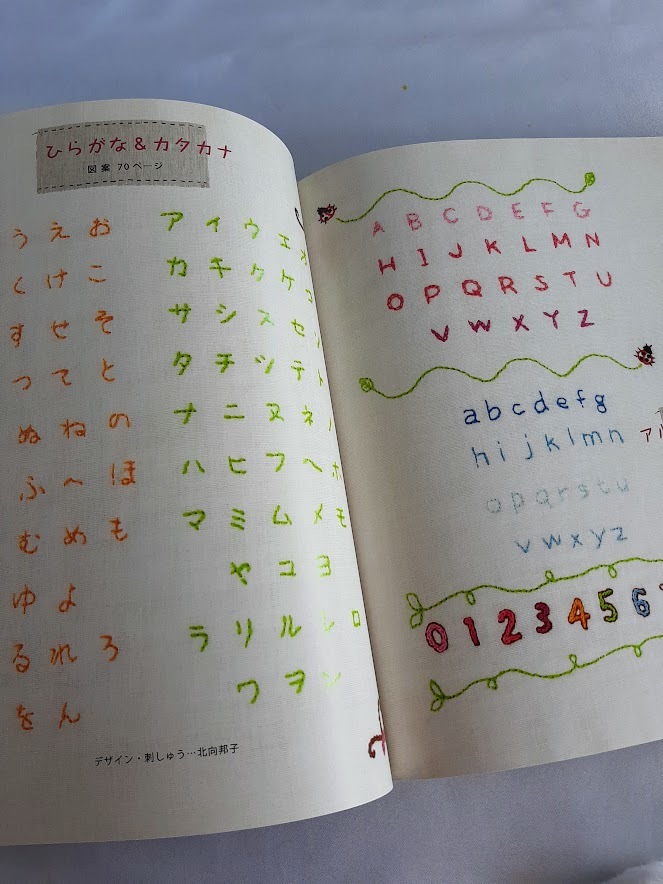 ひらがな&カタカナ
図案 70ページ
うえお
くけこ
すせそ
つてと
ぬねの
ふへほ
むめも
ゆよ
るれろ
をん
アイウエオ
カキクケコ
サシスセソ
タチツテト
ナニヌネノ
ハヒフヘホ
マミムメモ
ヤユヨ
ラリルレロ
ワヲン
デザイン・刺しゅう…北向邦子
ABCDEFG
HIJKLMN
OPQRSTU
VWXYZ
abcdefg
hijklmn
opqrstu
vwxyz
アル
0123456